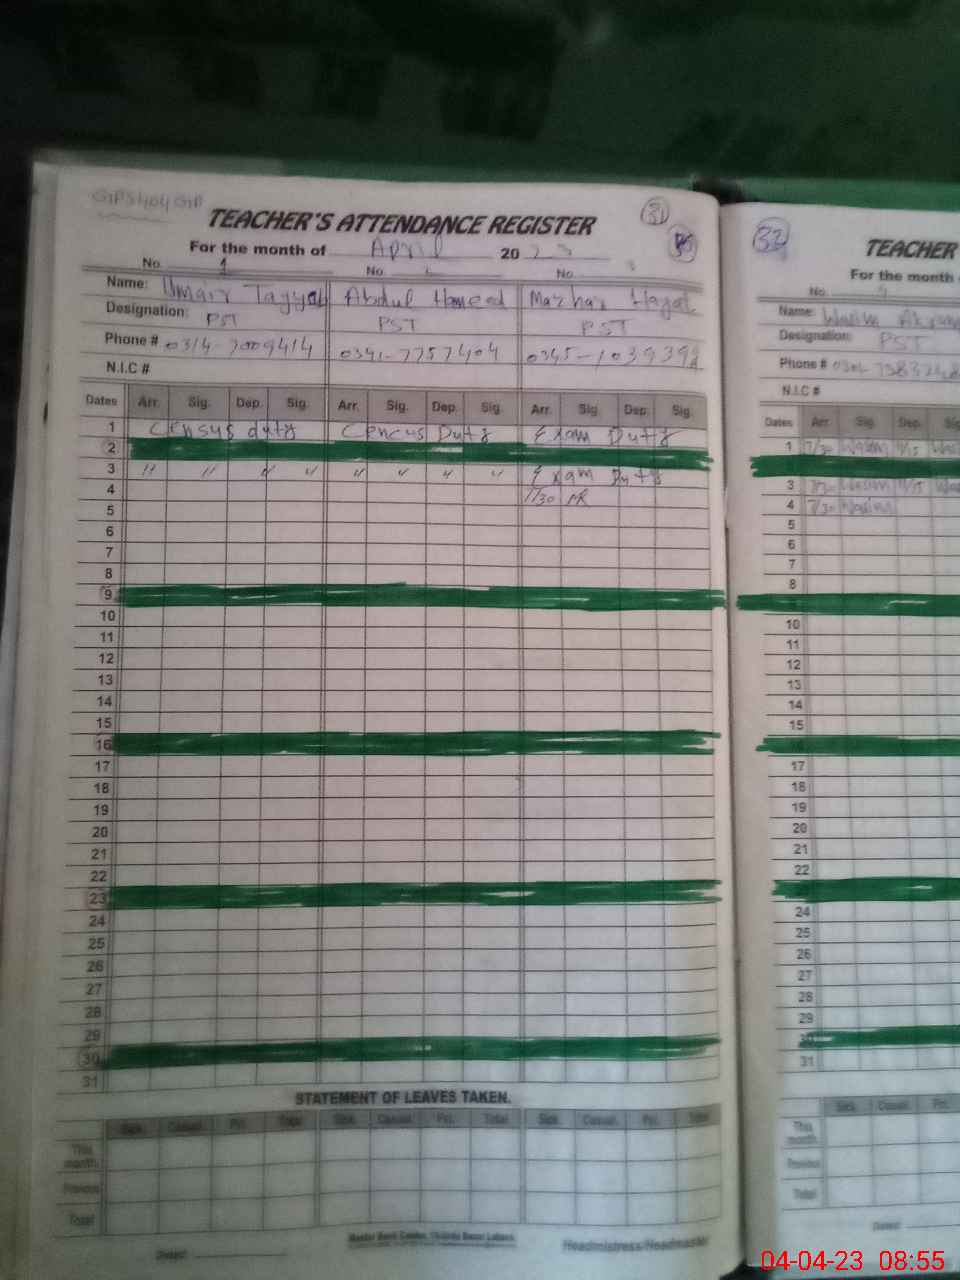 31
TEACHER'S ATTENDANCE REGISTER
For the month of April 2023
No. 1 No. No.
Name: Umair Tayyab Abdul Hameed Mazhar Hayat
Designation: PST PST PST
Phone # 0314-7009414 0341-7757404
N.I.C #
Dates Arr. Sig. Dep. Sig. Arr. Sig. Dep. Sig. Arr. Sig. Dep. Sig.
1 Census duty Cencus Duty Exam Duty
2
3 " " " " " " " " Exam Duty
4 7/30
5
6
7
8
9
10
11
12
13
14
15
16
17
18
19
20
21
22
23
24
25
26
27
28
29
30
31
STATEMENT OF LEAVES TAKEN.
Sick. Casual. Pri. Total Sick. Casual. Pri. Total Sick. Casual. Pri. Total
This month.
Previous
Total
Dated:
Headmistress/Headmaster
32
TEACHER
For the month
No. 4
Name: Wasim
Designation: PST
Phone #
N.I.C #
Dates Arr. Sig. Dep. Sig
1 7/30 Wasim
3 7/30 Wasim
4 7/30 Wasim
5
6
7
8
10
11
12
13
14
15
17
18
19
20
21
22
24
25
26
27
28
29
30
31
Sick. Casual. Pri.
This month.
Previous
Total
Dated:
04-04-23 08:55